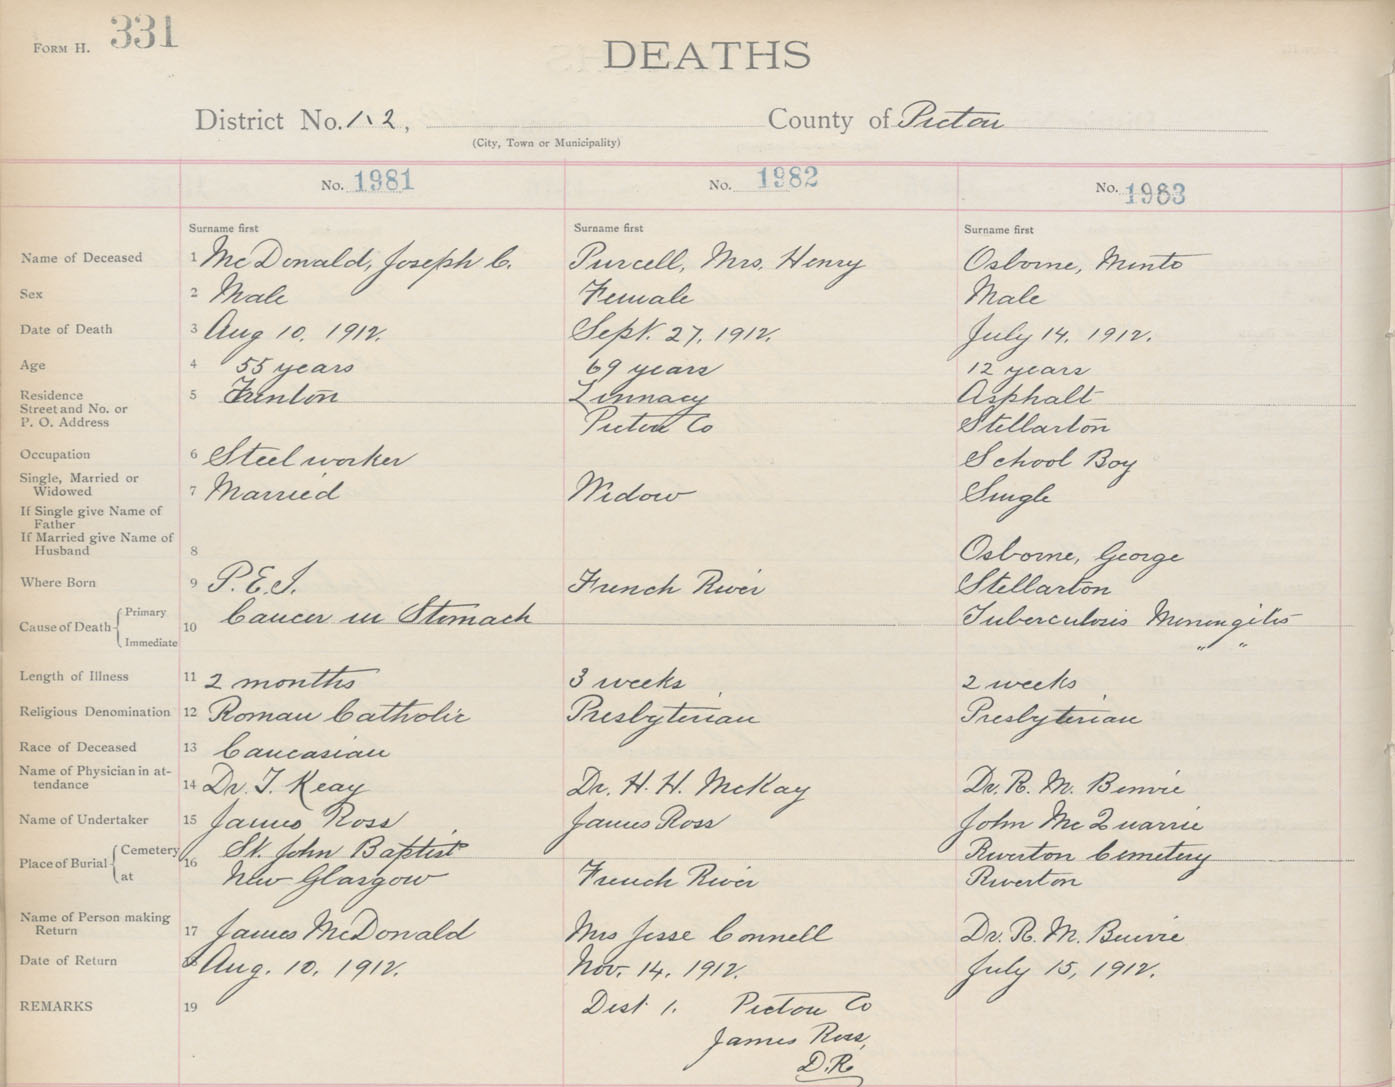 FORM H. 331
DEATHS
District No. 1.2, County of Pictou
(City, Town or Municipality)
No. 1981 No. 1982 No. 1983
Surname first Surname first Surname first
Name of Deceased 1 McDonald, Joseph C. Purcell, Mrs. Henry Osborne, Minto
Sex 2 Male Female Male
Date of Death 3 Aug 10, 1912. Sept. 27, 1912. July 14, 1912.
Age 4 55 years 69 years 12 years
Residence 5 Trenton Linnacy Asphalt
Street and No. or
P. O. Address Pictou Co Stellarton
Occupation 6 Steel worker School Boy
Single, Married or
Widowed 7 Married Widow Single
If Single give Name of
Father
If Married give Name of
Husband 8 Osborne, George
Where Born 9 P.E.I. French River Stellarton
Cause of Death Primary 10 Cancer in Stomach Tuberculosis Meningitis
Immediate " "
Length of Illness 11 2 months 3 weeks 2 weeks
Religious Denomination 12 Roman Catholic Presbyterian Presbyterian
Race of Deceased 13 Caucasian
Name of Physician in at-
tendance 14 Dr. J. Keay Dr. H. H. McKay Dr. R. M. Benvie
Name of Undertaker 15 James Ross James Ross John McQuarrie
Place of Burial Cemetery 16 St. John Baptist Riverton Cemetery
at New Glasgow French River Riverton
Name of Person making
Return 17 James McDonald Mrs Jesse Connell Dr. R. M. Benvie
Date of Return 18 Aug. 10, 1912. Nov. 14, 1912. July 15, 1912.
REMARKS 19 Dist 1. Pictou Co
James Ross,
D.R.